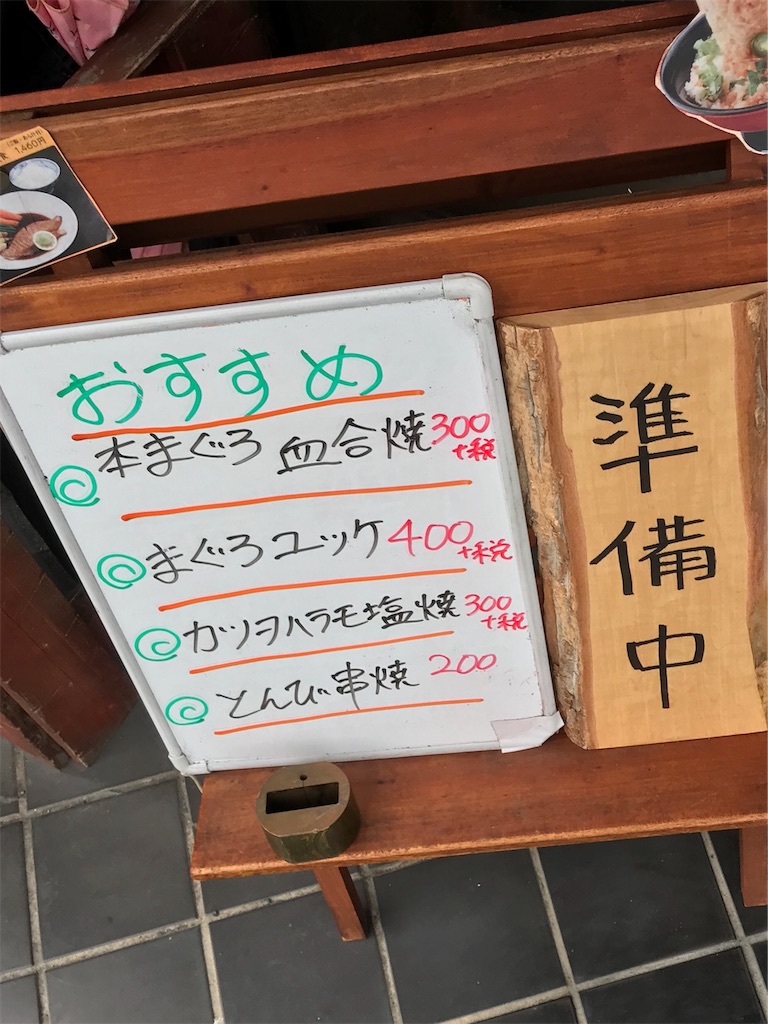 食 1,460円
おすすめ
本まぐろ 血合焼 300+税
まぐろユッケ 400+税
カツヲハラモ塩焼 300+税
とんび串焼 200
準備中